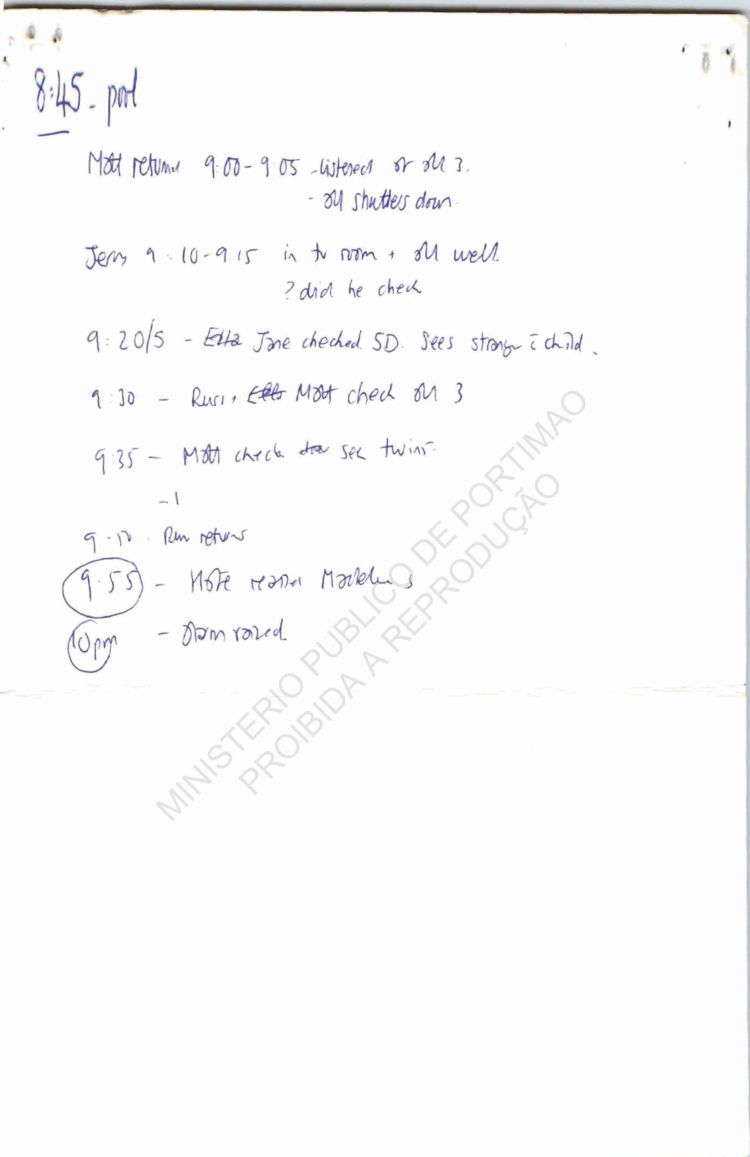 8:45 - pool
Matt returns 9:00-9:05 - listened at all 3.
- all shutters down.
Jerry 9:10-9:15 in tv room + all well
? did he check
9:20/5 - Ella Jane checked 5D. Sees stranger c̄ child.
9:30 - Russ, Ella Matt check all 3
9:35 - Matt check see twins.
- 1
Russ returns
9:55 - realised Madeleine
10pm - Alarm raised
MINISTERIO PUBLICO DE PORTIMAO
PROIBIDA A REPRODUÇÃO